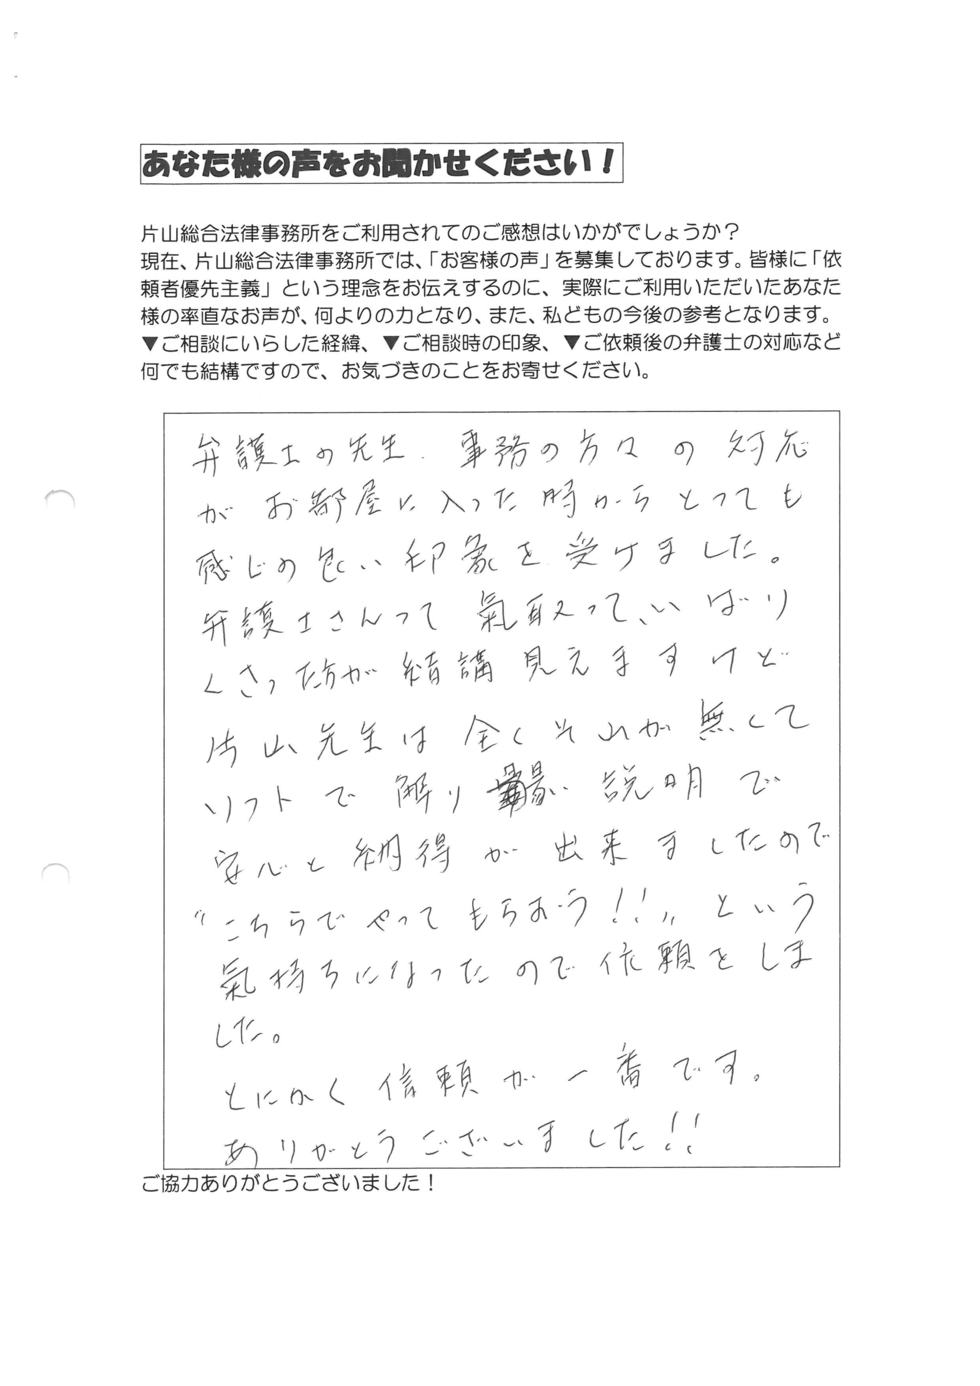 あなた様の声をお聞かせください！
片山総合法律事務所をご利用されてのご感想はいかがでしょうか？
現在、片山総合法律事務所では、「お客様の声」を募集しております。皆様に「依
頼者優先主義」という理念をお伝えするのに、実際にご利用いただいたあなた
様の率直なお声が、何よりの力となり、また、私どもの今後の参考となります。
▼ご相談にいらした経緯、▼ご相談時の印象、▼ご依頼後の弁護士の対応など
何でも結構ですので、お気づきのことをお寄せください。
弁護士の先生、事務の方々の対応
がお部屋に入った時からとっても
感じの良い印象を受けました。
弁護士さんって氣取って、いばり
くさった方が結講見えますけど
片山先生は全くそれが無くて
ソフトで解り易い説明で
安心と納得が出来ましたので
〝こちらでやってもらおう!!〟という
氣持ちになったので依頼をしま
した。
とにかく信頼が一番です。
ありがとうございました!!
ご協力ありがとうございました！